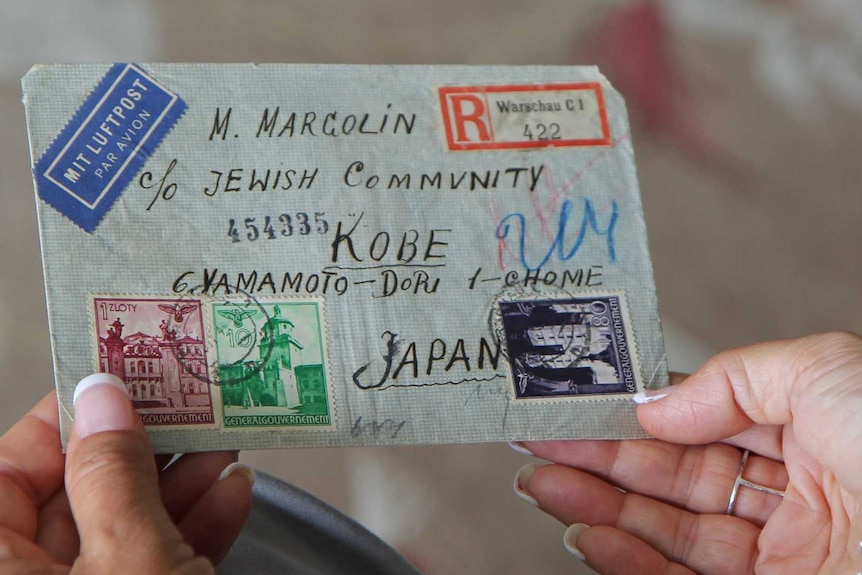 MIT LUFTPOST
PAR AVION
M. MARGOLIN
R
Warschau C 1
422
c/o JEWISH COMMVNITY
454335
KOBE
6.YAMAMOTO-DORI 1-CHOME
JAPAN
1 ZLOTY
GOUVERNEMENT
10
GENERALGOUVERNEMENT
80
GENERALGOUVERNEMENT